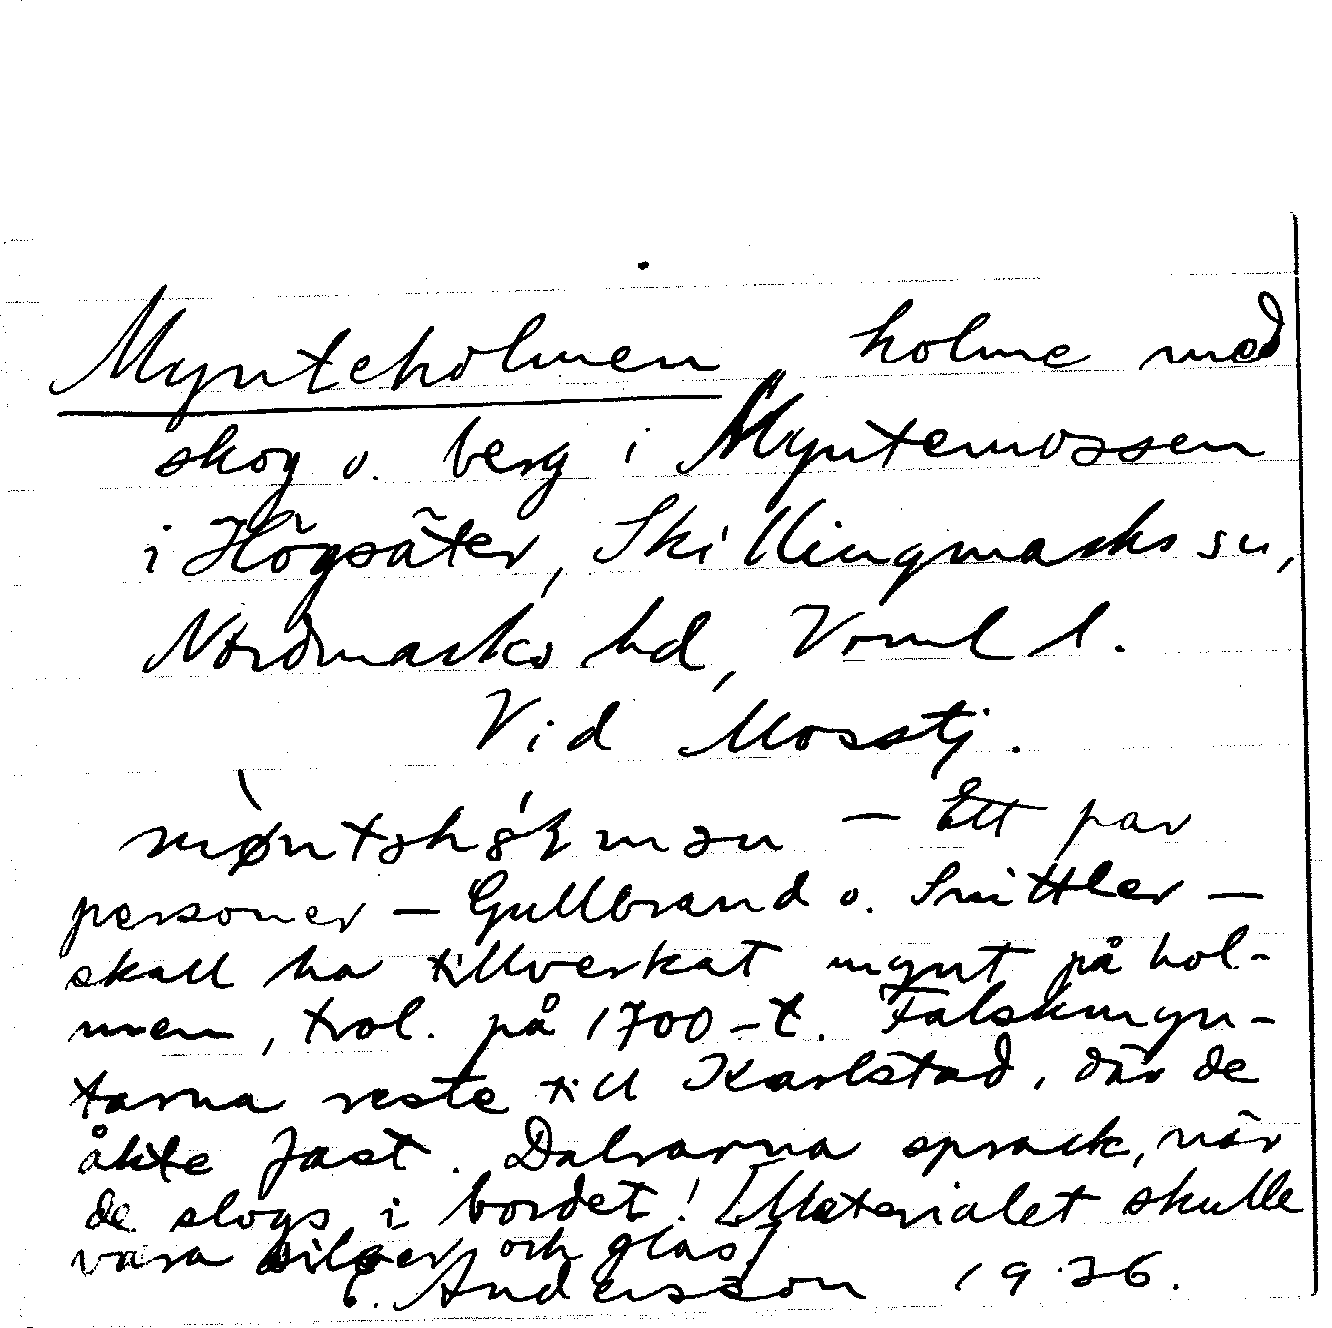 Mynteholmen, holme med
skog o. berg i Myntemossen
i Högsäter, Skillingmarks sn,
Nordmarks hd, Vrml l.
Vid Mosstj.
— Ett par
personer — Gullbrand o. Snittler —
skall ha tillverkat mynt på hol-
men, trol. på 1700-t. Falskmyn-
tarna reste till Karlstad, där de
åkte fast. Dalrarna sprack, när
de slogs i bordet! [Materialet skulle
vara silver och glas]
E. Andersson 1936.